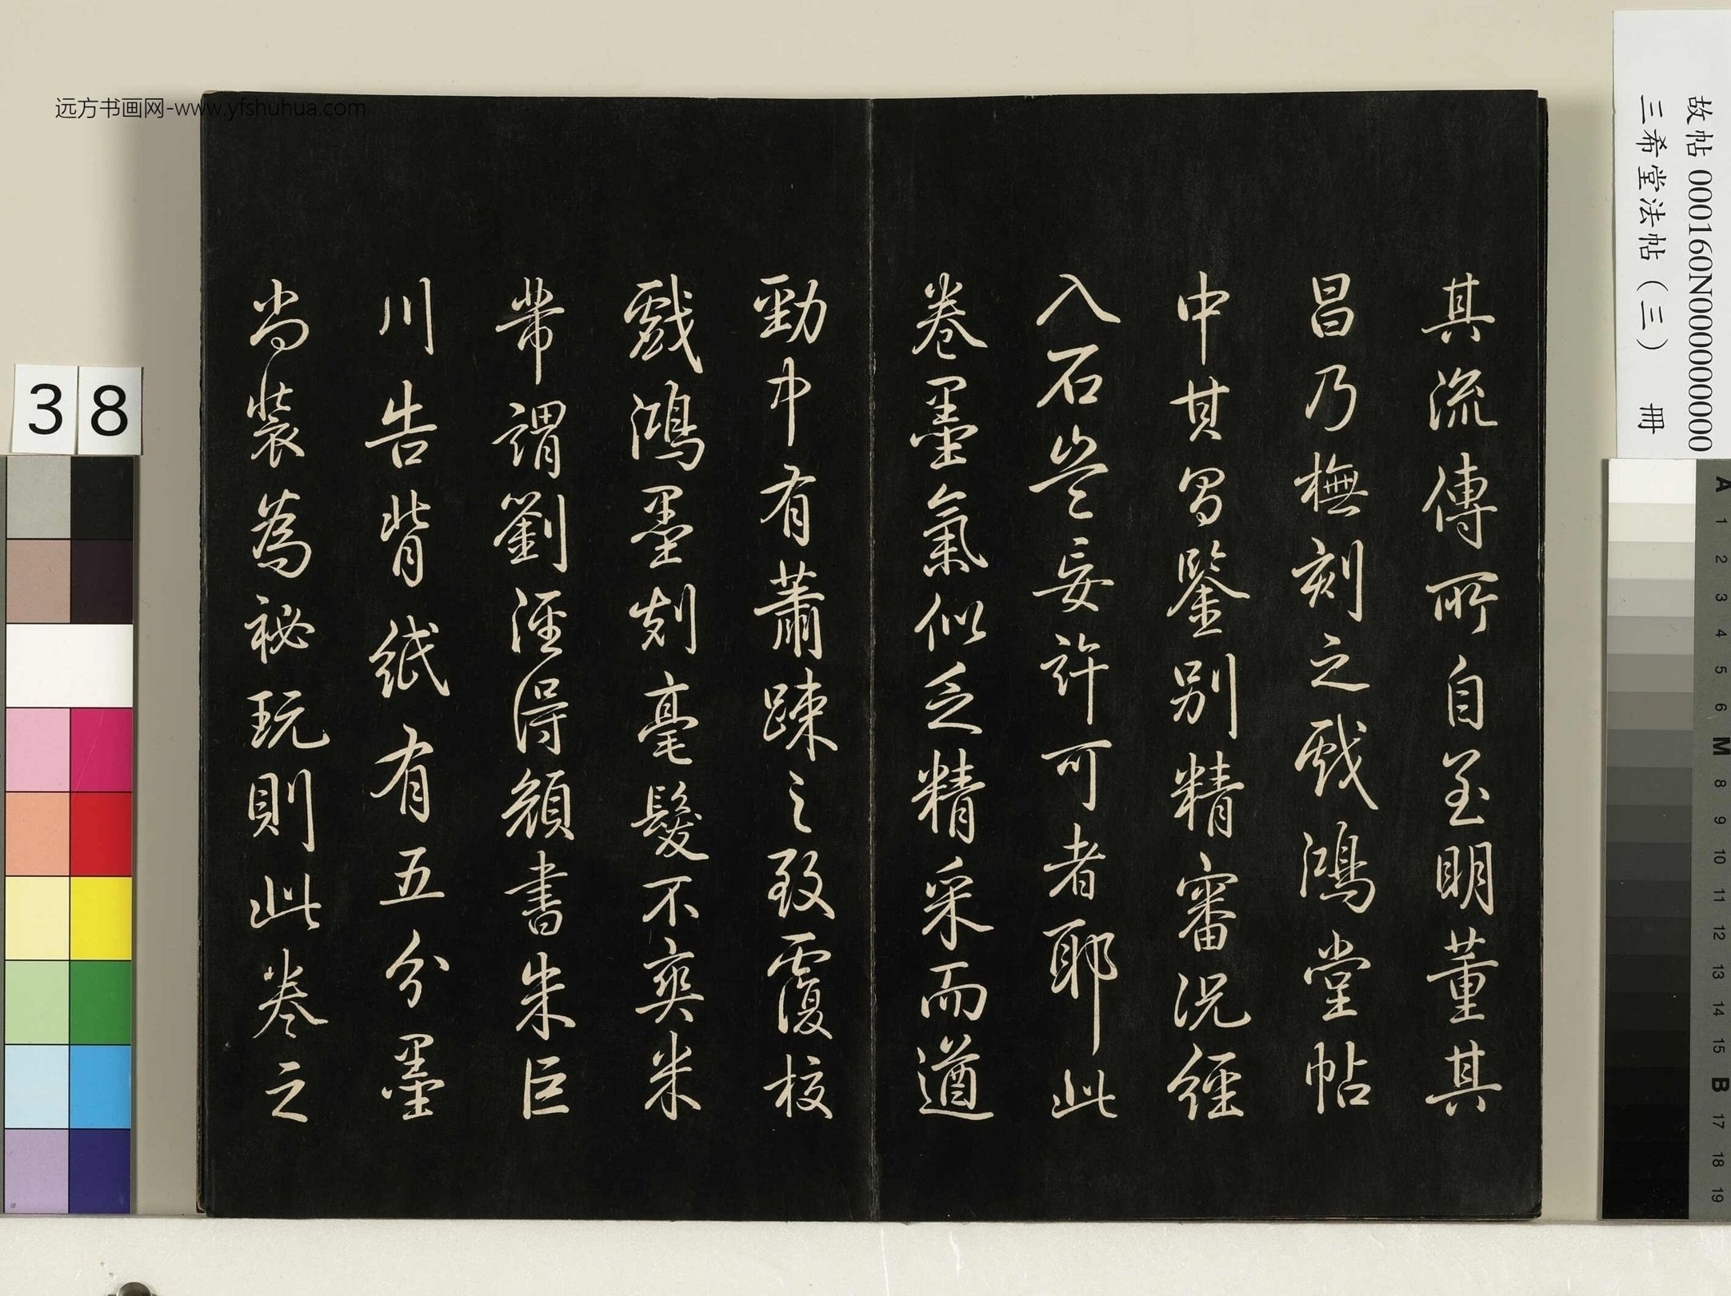 远方书画网-www.yfshuhua.com
故帖 000160N000000000
三希堂法帖（三） 冊
其流傳所自至明董其
昌乃橅刻之戲鴻堂帖
中其昌鑒別精審況經
入石豈妄許可者耶此
卷墨氣似乏精采而遒
勁中有蕭疎之致覆校
戲鴻墨刻毫髮不爽米
芾謂劉涇得顏書朱巨
川告背紙有五分墨
尚裝為祕玩則此卷之
38
A
1
2
3
4
5
6
M
8
9
10
11
12
13
14
15
B
17
18
19